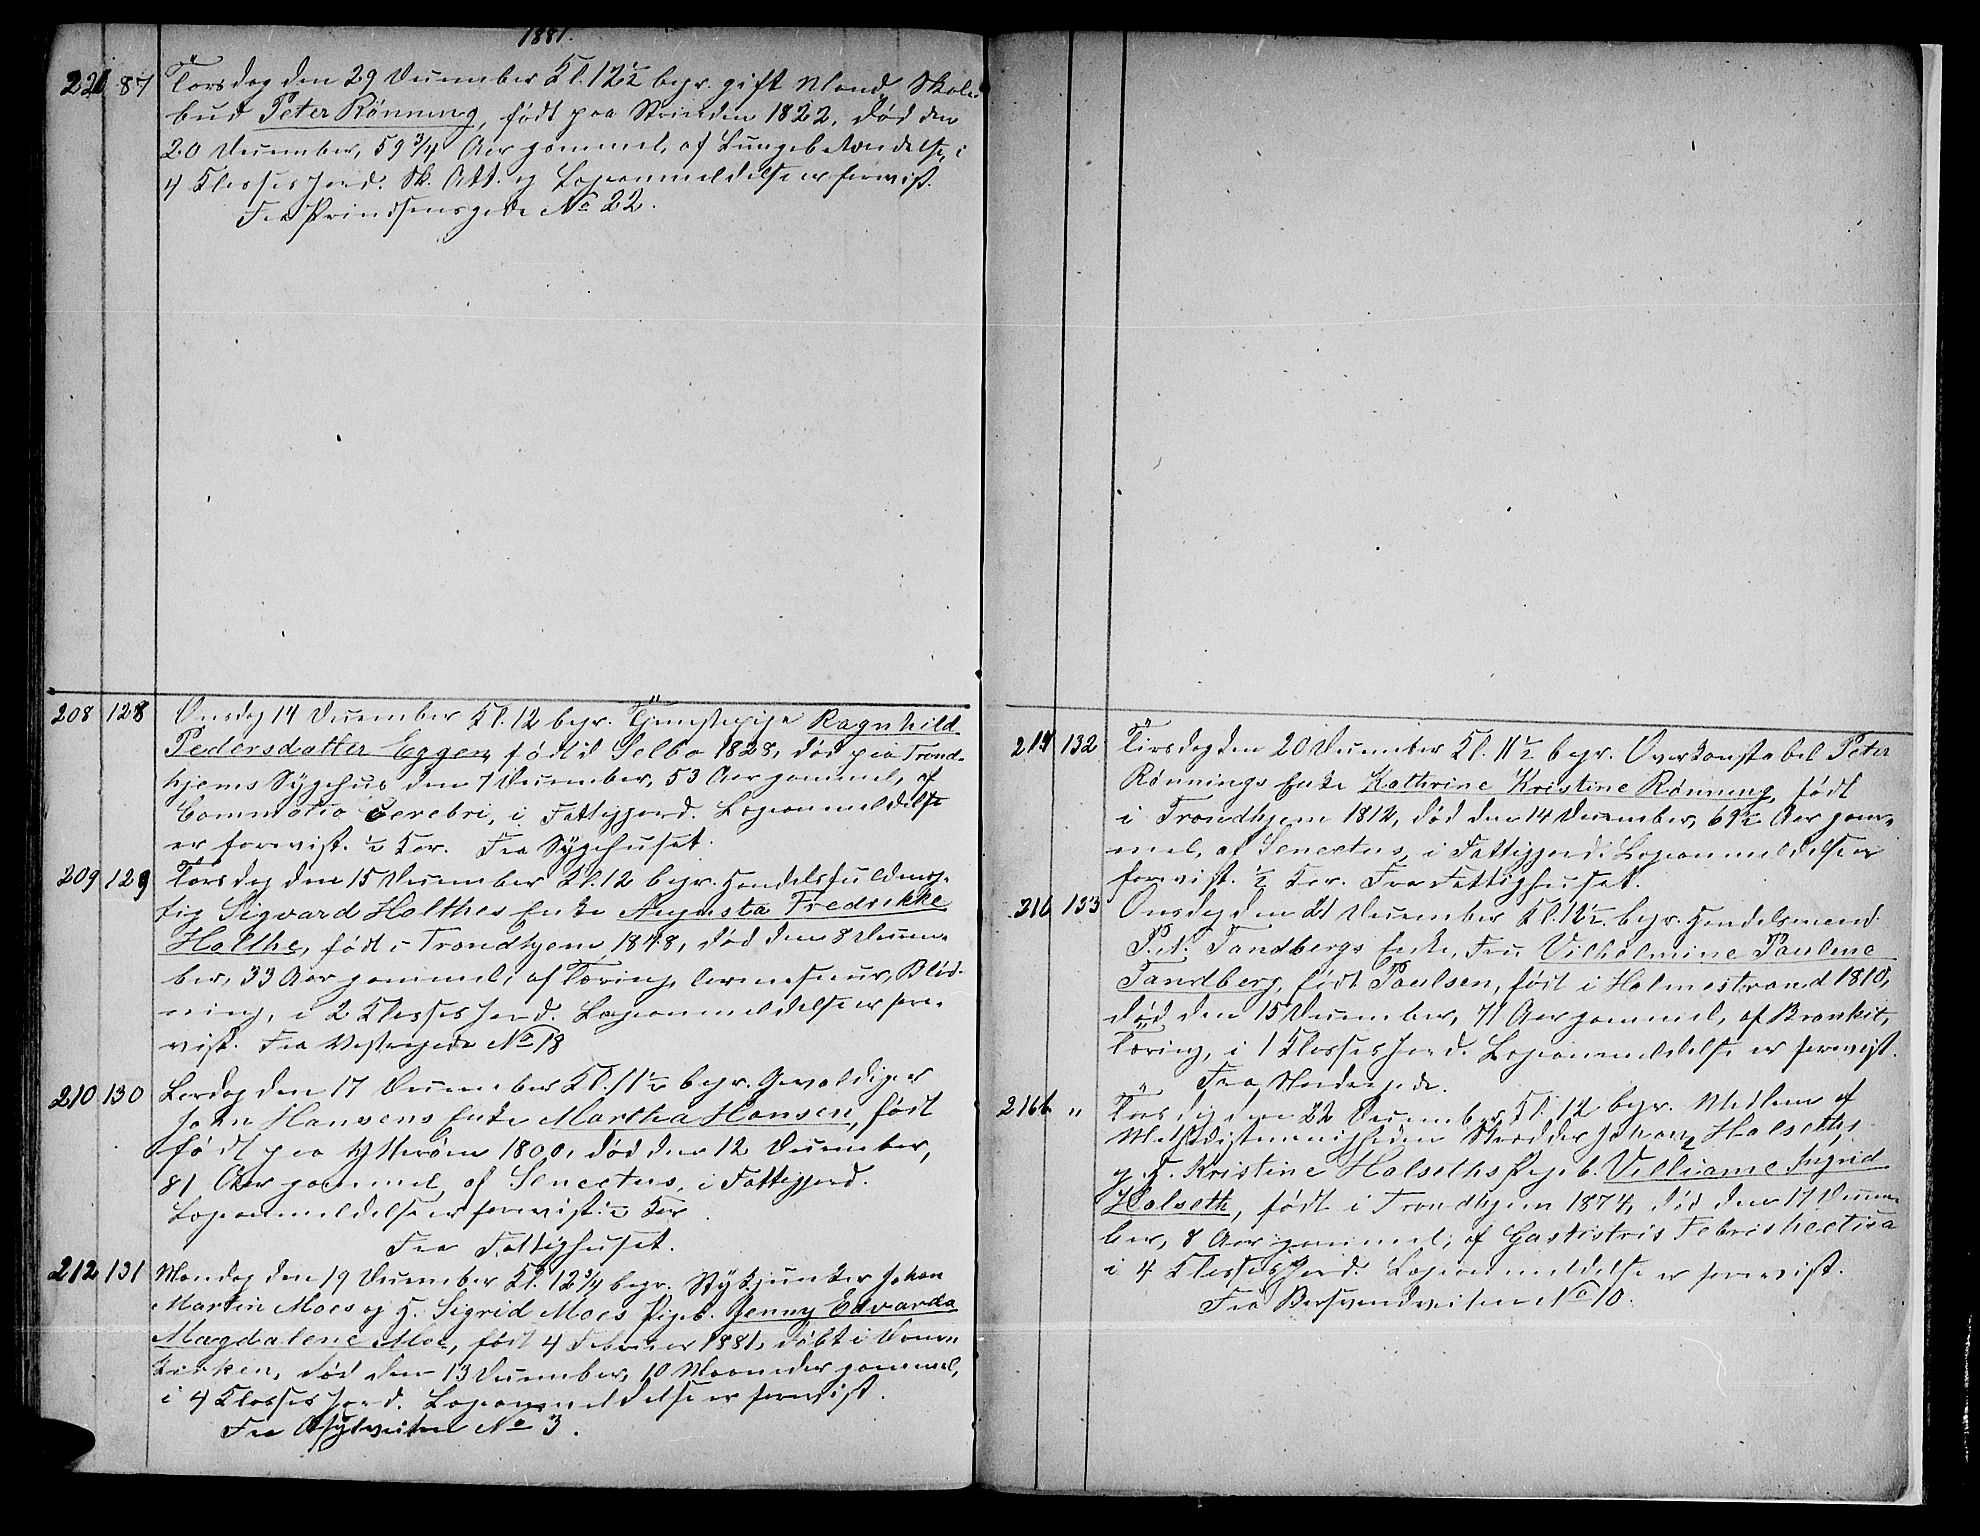 1881.
221 87 Torsdag den 29 December Kl. 12½ begr. gift Mand, Skole-
bud Peter Rönning, födt paa Strinden 1822, död den
20 December, 59 3/4 Aar gammel, af Lungebetændelse, i
4 Klasses Jord. Sk. Att. og Lægeanmeldelse er forevist.
Fra Prindsensgade No 22.
208 128 Onsdag 14 December Kl. 12 begr. Tjenestepige Ragnhild
Pedersdatter Eggen, födt i Selbo 1828, död paa Trond-
hjems Sygehus den 7 December, 53 Aar gammel, af
Commotio Cerebri, i Fattigjord. Lægeanmeldelse
er forevist. ½ Kor. Fra Sygehuset.
209 129 Torsdag den 15 December Kl. 12 begr. Handelsfuldmæg-
tig Sigvard Holthes Enke Augusta Fredrikke
Holthe, födt i Trondhjem 1848, död den 8 Decem-
ber, 33 Aar gammel, af Tæring, Blöd-
ning, i 2 Klasses Jord. Lægeanmeldelse er fore-
vist. Fra Vestregade No 18
210 130 Lördag den 17 December Kl. 11½ begr. Gevaldiger
John Hansens Enke Martha Hansen, födt
födt paa Ytterøen 1800, död den 12 December,
81 Aar gammel, af Senectus, i Fattigjord.
Lægeanmeldelse er forevist. ½ Kor
Fra Fattighuset.
212 131 Mandag den 19 December Kl. 12 3/4 begr. Stykjunker Johan
Martin Moes og H. Sigrid Moes Pigeb. Jenny Edvarda
Magdalene Moe, födt 4 Februar 1881, döbt i Dom-
kirken, död den 13 December, 10 Maaneder gammel,
i 4 Klasses Jord. Lægeanmeldelse er forevist.
Fra Asylveiten No 3.
214 132 Tirsdag den 20 December Kl. 11½ begr. Overkonstabel Peter
Rönnings Enke Kathrine Kristine Rönning, födt
i Trondhjem 1812, död den 14 December, 69½ Aar gam-
mel, af Senectus, i Fattigjord. Lægeanmeldelse er
forevist. ½ Kor. Fra Fattighuset.
216 133 Onsdag den 21 December Kl. 12½ begr. Handelsmand
P. A. Tandbergs Enke, Fru Vilhelmine Pauline
Tandberg, födt Paulsen, födt i Holmestrand 1810,
död den 15 December, 71 Aar gammel, af Bronkit,
Tæring, i 1 Klasses Jord. Lægeanmeldelse er forevist.
Fra Nordregade.
216b " Torsdag den 22 December Kl. 12 begr. Medlem af
Methodistmenigheden Skrædder Johan Halseths
g. H. Kristine Halseths Pigeb. Velliame Ingrid
Halseth, födt i Trondhjem 1874, död den 17 Decem-
ber, 8 Aar gammel, af Gastistris Febrishectica
i 4 Klasses Jord. Lægeanmeldelse er forevist.
Fra Bersvendveiten No 10.